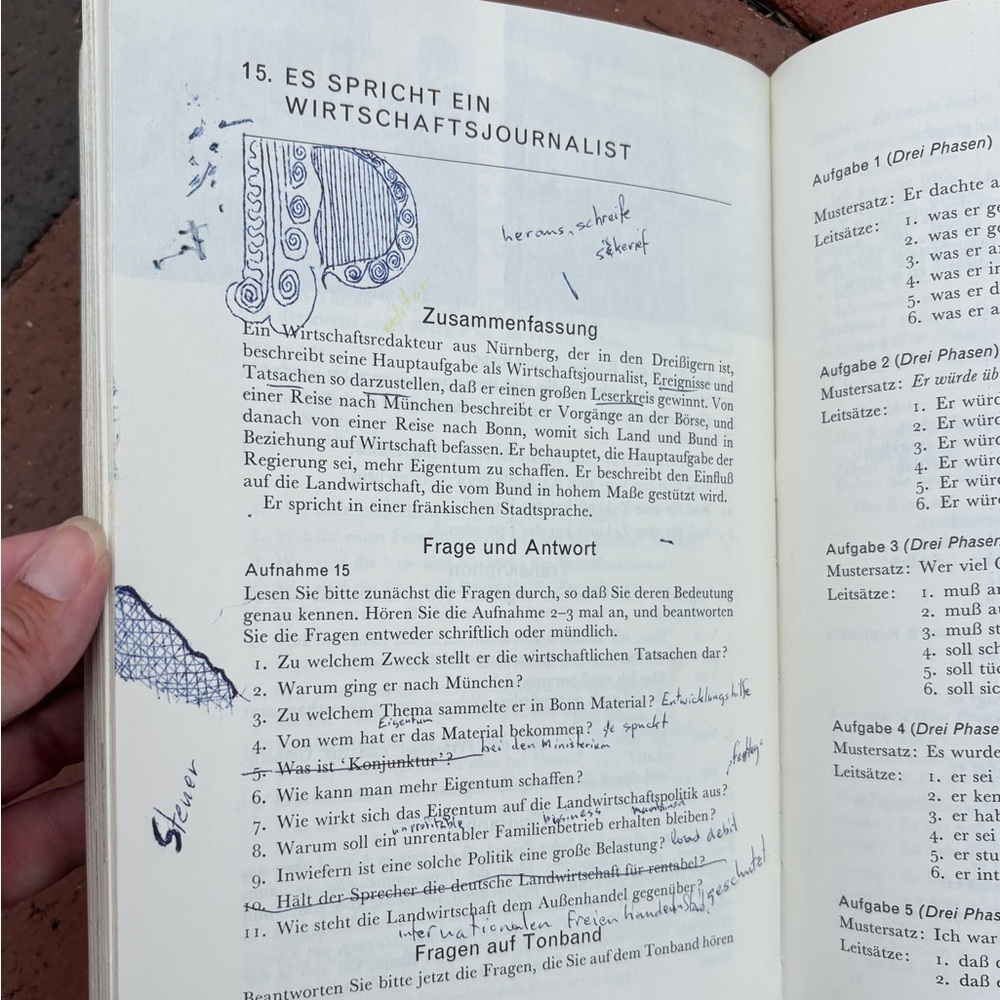 15. ES SPRICHT EIN
WIRTSCHAFTSJOURNALIST
editor
Zusammenfassung
Ein Wirtschaftsredakteur aus Nürnberg, der in den Dreißigern ist,
beschreibt seine Hauptaufgabe als Wirtschaftsjournalist, Ereignisse und
Tatsachen so darzustellen, daß er einen großen Leserkreis gewinnt. Von
einer Reise nach München beschreibt er Vorgänge an der Börse, und
danach von einer Reise nach Bonn, womit sich Land und Bund in
Beziehung auf Wirtschaft befassen. Er behauptet, die Hauptaufgabe der
Regierung sei, mehr Eigentum zu schaffen. Er beschreibt den Einfluß
auf die Landwirtschaft, die vom Bund in hohem Maße gestützt wird.
Er spricht in einer fränkischen Stadtsprache.
Frage und Antwort
Aufnahme 15
Lesen Sie bitte zunächst die Fragen durch, so daß Sie deren Bedeutung
genau kennen. Hören Sie die Aufnahme 2–3 mal an, und beantworten
Sie die Fragen entweder schriftlich oder mündlich.
1. Zu welchem Zweck stellt er die wirtschaftlichen Tatsachen dar?
2. Warum ging er nach München?
3. Zu welchem Thema sammelte er in Bonn Material? Entwicklungshilfe
Eigentum
4. Von wem hat er das Material bekommen?
bei den Ministerium
5. Was ist 'Konjunktur'?
6. Wie kann man mehr Eigentum schaffen?
7. Wie wirkt sich das Eigentum auf die Landwirtschaftspolitik aus?
unprofitable business maintained
8. Warum soll ein unrentabler Familienbetrieb erhalten bleiben?
9. Inwiefern ist eine solche Politik eine große Belastung? load debit
10. Hält der Sprecher die deutsche Landwirtschaft für rentabel?
11. Wie steht die Landwirtschaft dem Außenhandel gegenüber?
internationalen freien
Fragen auf Tonband
Beantworten Sie bitte jetzt die Fragen, die Sie auf dem Tonband hören
Steuer
Aufgabe 1 (Drei Phasen)
Mustersatz: Er dachte a
Leitsätze: 1. was er ge
2. was er ge
3. was er a
4. was er in
5. was er d
6. was er a
Aufgabe 2 (Drei Phasen)
Mustersatz: Er würde üb
Leitsätze: 1. Er würd
2. Er würd
3. Er würd
4. Er würd
5. Er würd
6. Er würd
Aufgabe 3 (Drei Phasen
Mustersatz: Wer viel
Leitsätze: 1. muß a
2. muß a
3. muß st
4. soll sch
5. soll tüc
6. soll sic
Aufgabe 4 (Drei Phas
Mustersatz: Es wurde
Leitsätze: 1. er sei
2. er ken
3. er hab
4. er sei
5. er stu
6. er int
Aufgabe 5 (Drei Phas
Mustersatz: Ich war
Leitsätze: 1. daß
2. daß